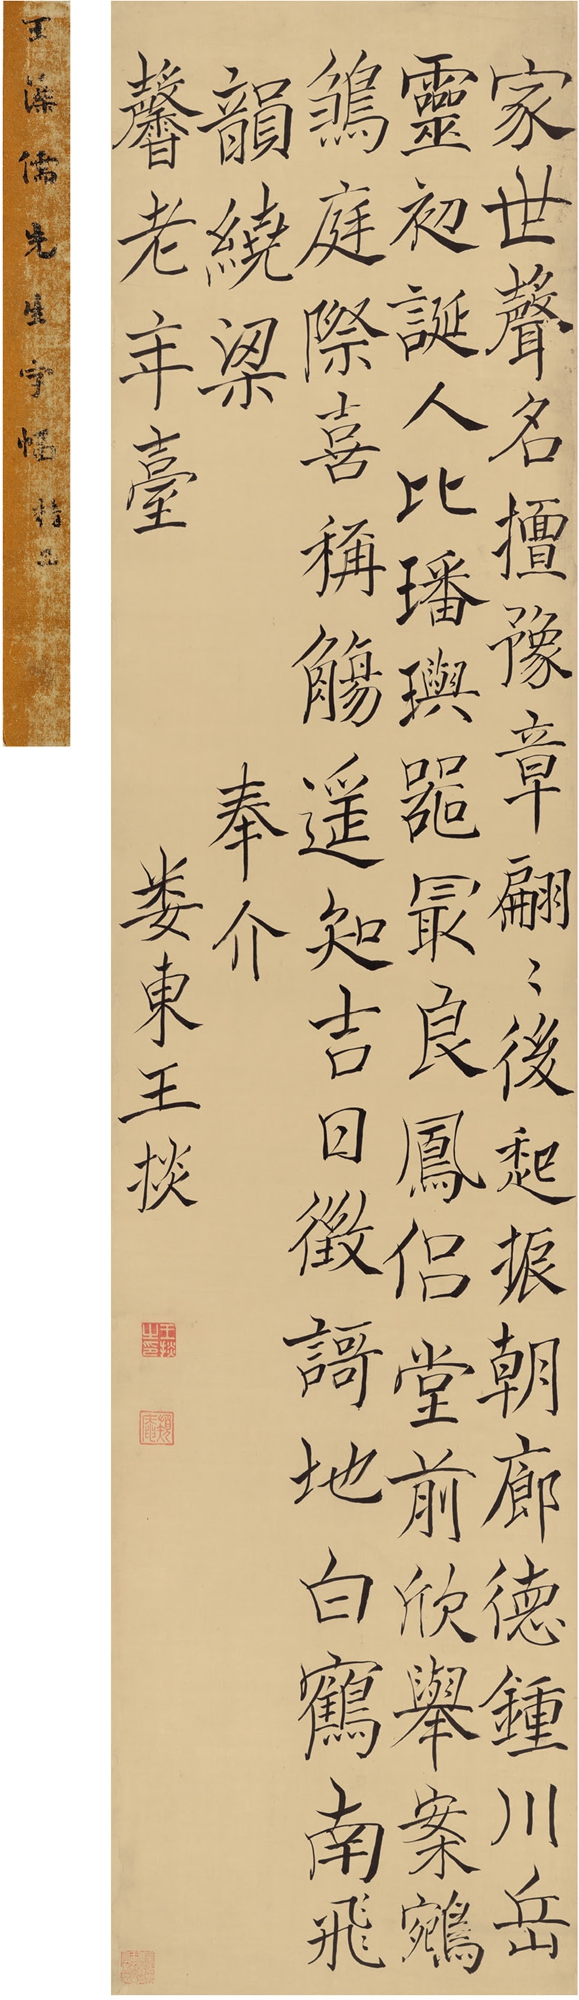 家世聲名擅豫章翩〻後起振朝廊德鍾川岳
靈初誕人比璠璵器最良鳳侶堂前欣舉案鵷
鶵庭際喜稱觴遥知吉日徵謌地白鶴南飛
韻繞梁
奉介
馨老年臺
婁東王掞
王掞之印
王藻儒先生字幅精品